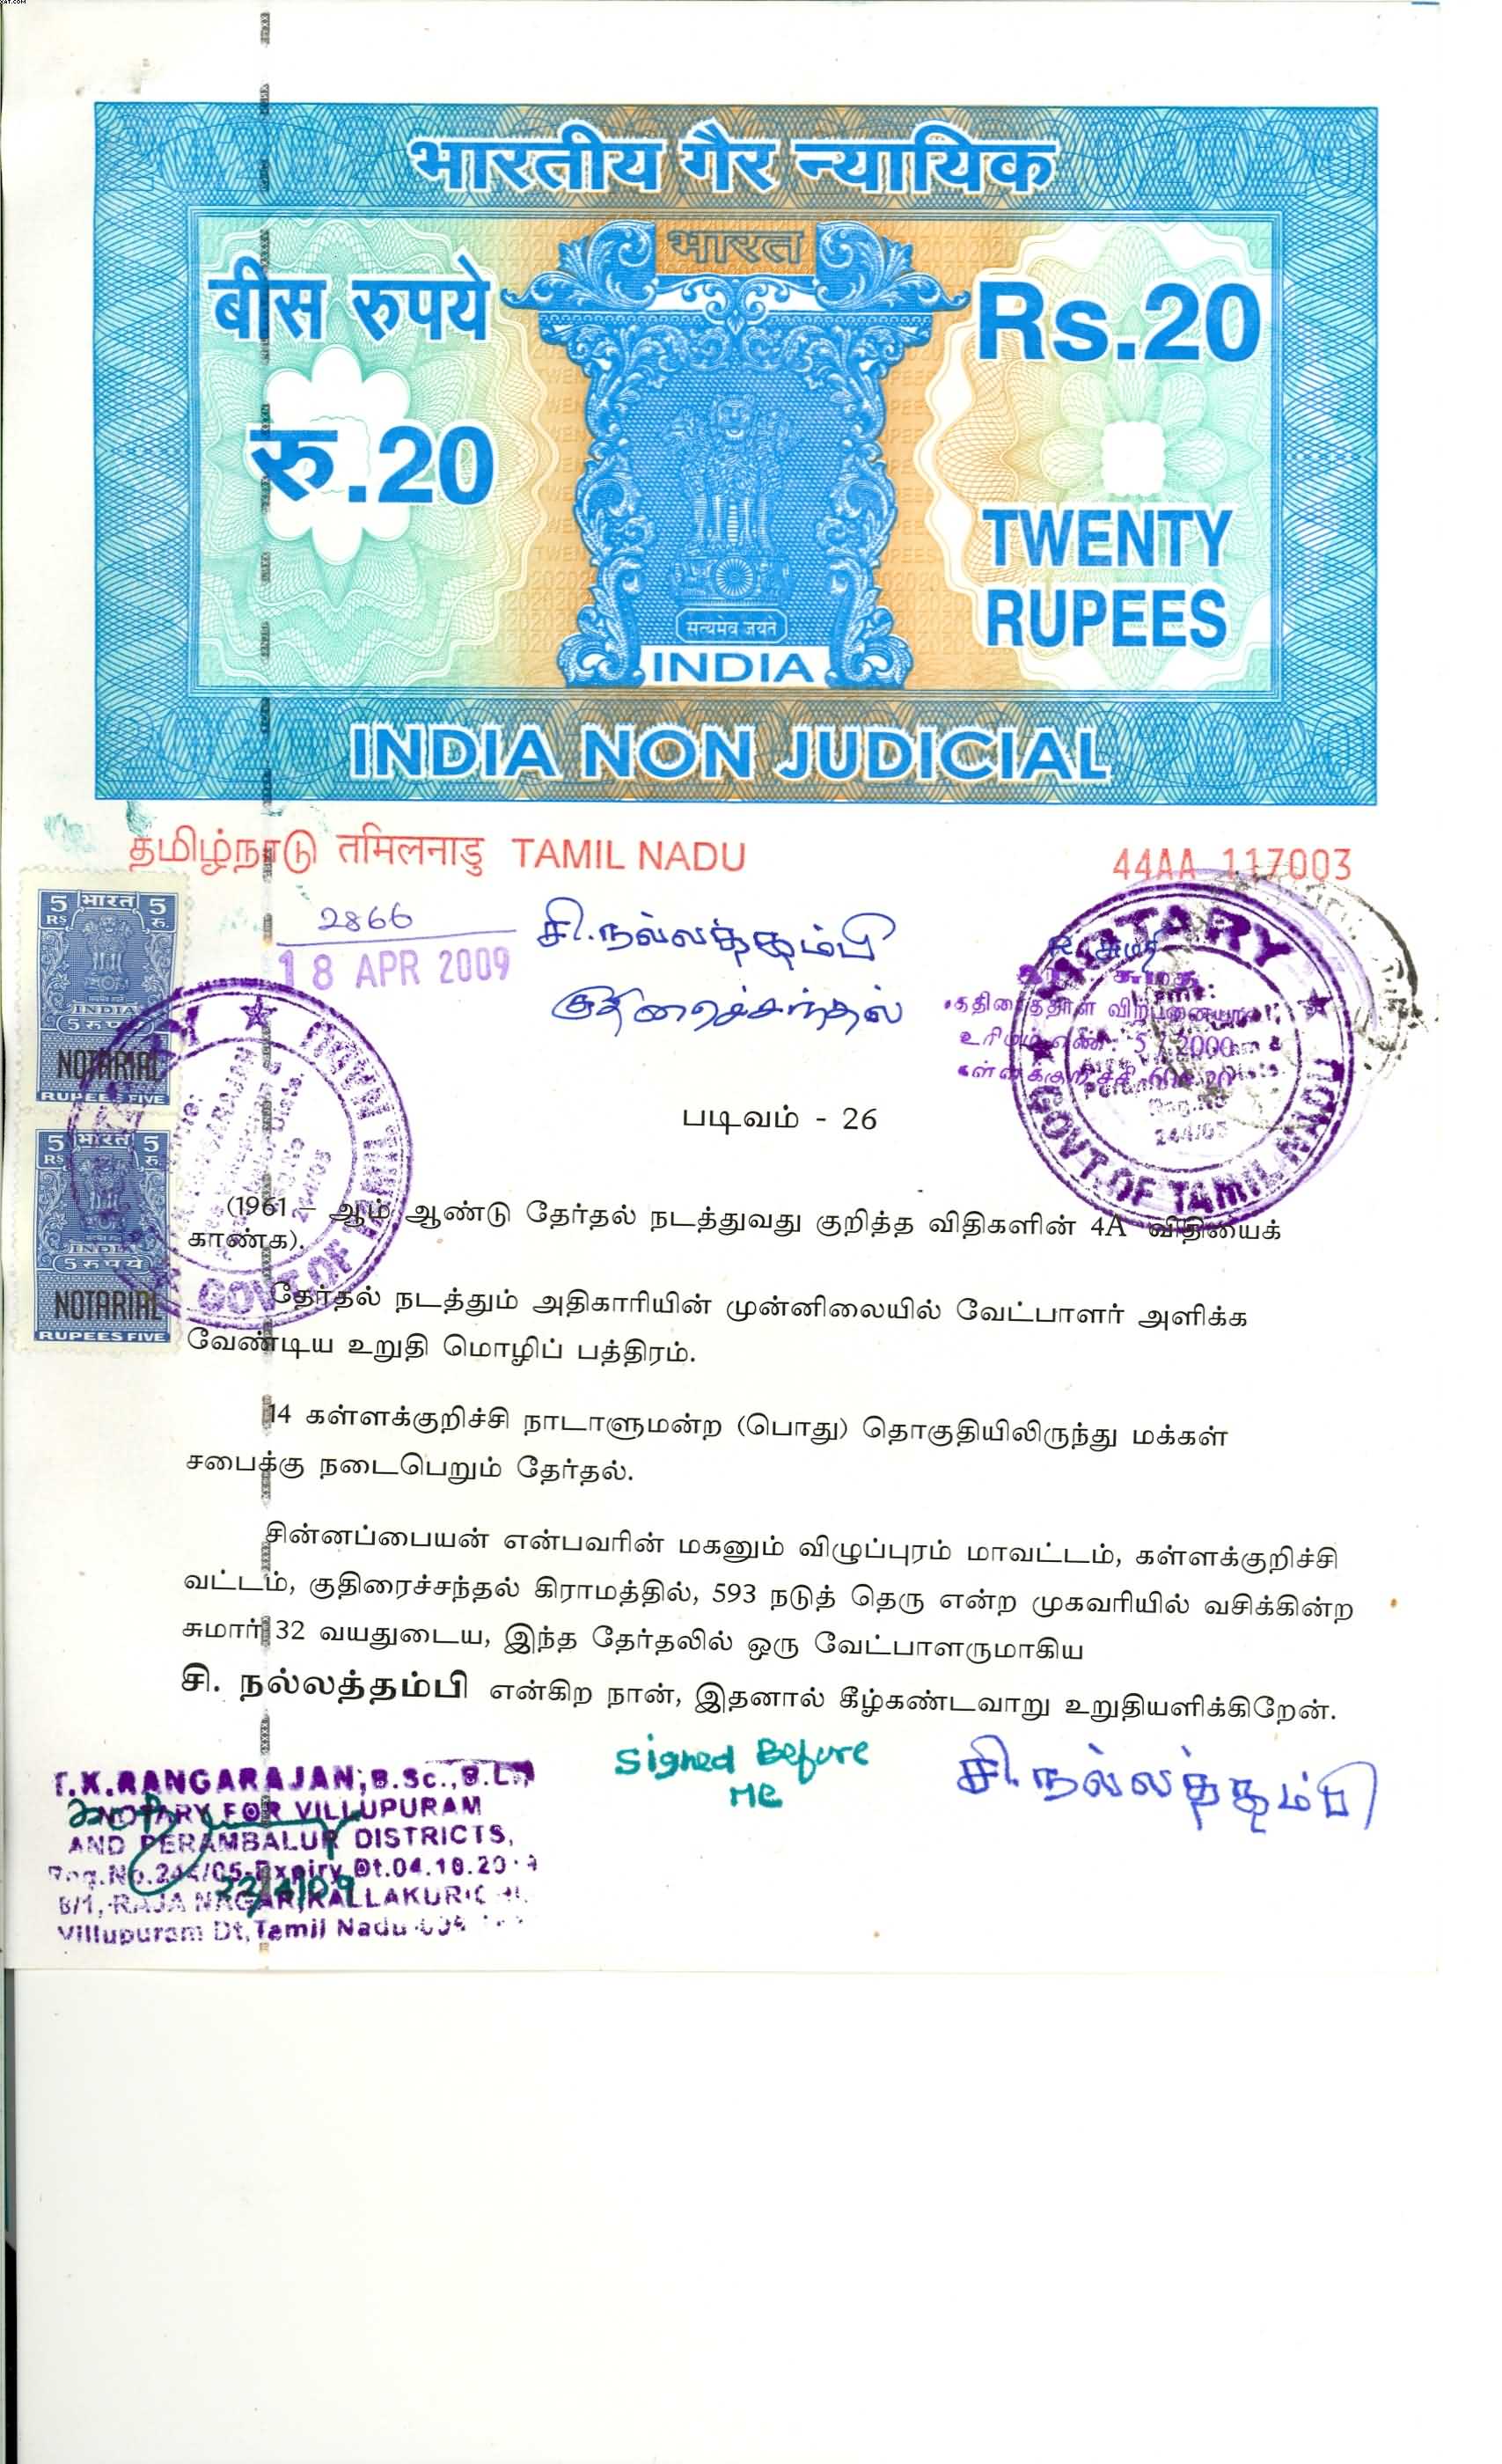 भारतीय गैर न्यायिक
भारत
बीस रुपये
Rs.20
रु.20
TWENTY
RUPEES
सत्यमेव जयते
INDIA
INDIA NON JUDICIAL
தமிழ்நாடு तमिलनाडु TAMIL NADU
44AA 117003
2866
18 APR 2009
சி.நல்லத்தம்பி
குதிரைச்சந்தல்
5 भारत 5
RS रु.
INDIA
5 रुपये
NOTARIAL
RUPEES FIVE
5 भारत 5
RS रु.
INDIA
5 रुपये
NOTARIAL
RUPEES FIVE
NOTARY
GOVT.OF TAMIL NADU
244/05
GOVT.OF
படிவம் - 26
(1961 – ஆம் ஆண்டு தேர்தல் நடத்துவது குறித்த விதிகளின் 4A விதியைக்
காண்க).
தேர்தல் நடத்தும் அதிகாரியின் முன்னிலையில் வேட்பாளர் அளிக்க
வேண்டிய உறுதி மொழிப் பத்திரம்.
14 கள்ளக்குறிச்சி நாடாளுமன்ற (பொது) தொகுதியிலிருந்து மக்கள்
சபைக்கு நடைபெறும் தேர்தல்.
சின்னப்பையன் என்பவரின் மகனும் விழுப்புரம் மாவட்டம், கள்ளக்குறிச்சி
வட்டம், குதிரைச்சந்தல் கிராமத்தில், 593 நடுத் தெரு என்ற முகவரியில் வசிக்கின்ற
சுமார் 32 வயதுடைய, இந்த தேர்தலில் ஒரு வேட்பாளருமாகிய
சி. நல்லத்தம்பி என்கிற நான், இதனால் கீழ்கண்டவாறு உறுதியளிக்கிறேன்.
Signed Before
Me
சி.நல்லத்தம்பி
T.K.RANGARAJAN, B.Sc., B.L.,
NOTARY FOR VILLUPURAM
AND PERAMBALUR DISTRICTS,
Reg.No.244/05-Expiry Dt.04.10.20
23/4/09
8/1, RAJA NAGAR, KALLAKURICHI
Villupuram Dt, Tamil Nadu